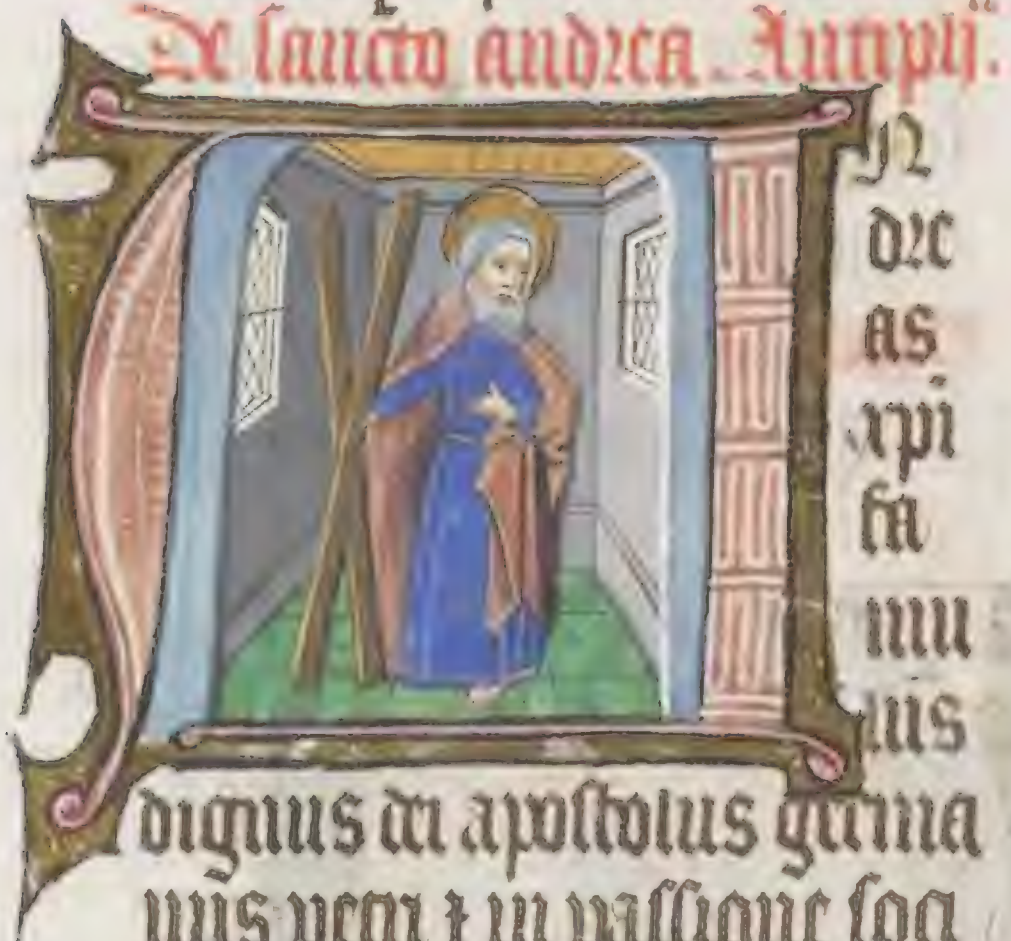 De sancto andrea. Antiph.
N
dre
as
xpi
fa
mu
lus
dignus dei apostolus germa
nus petri & in passione soci